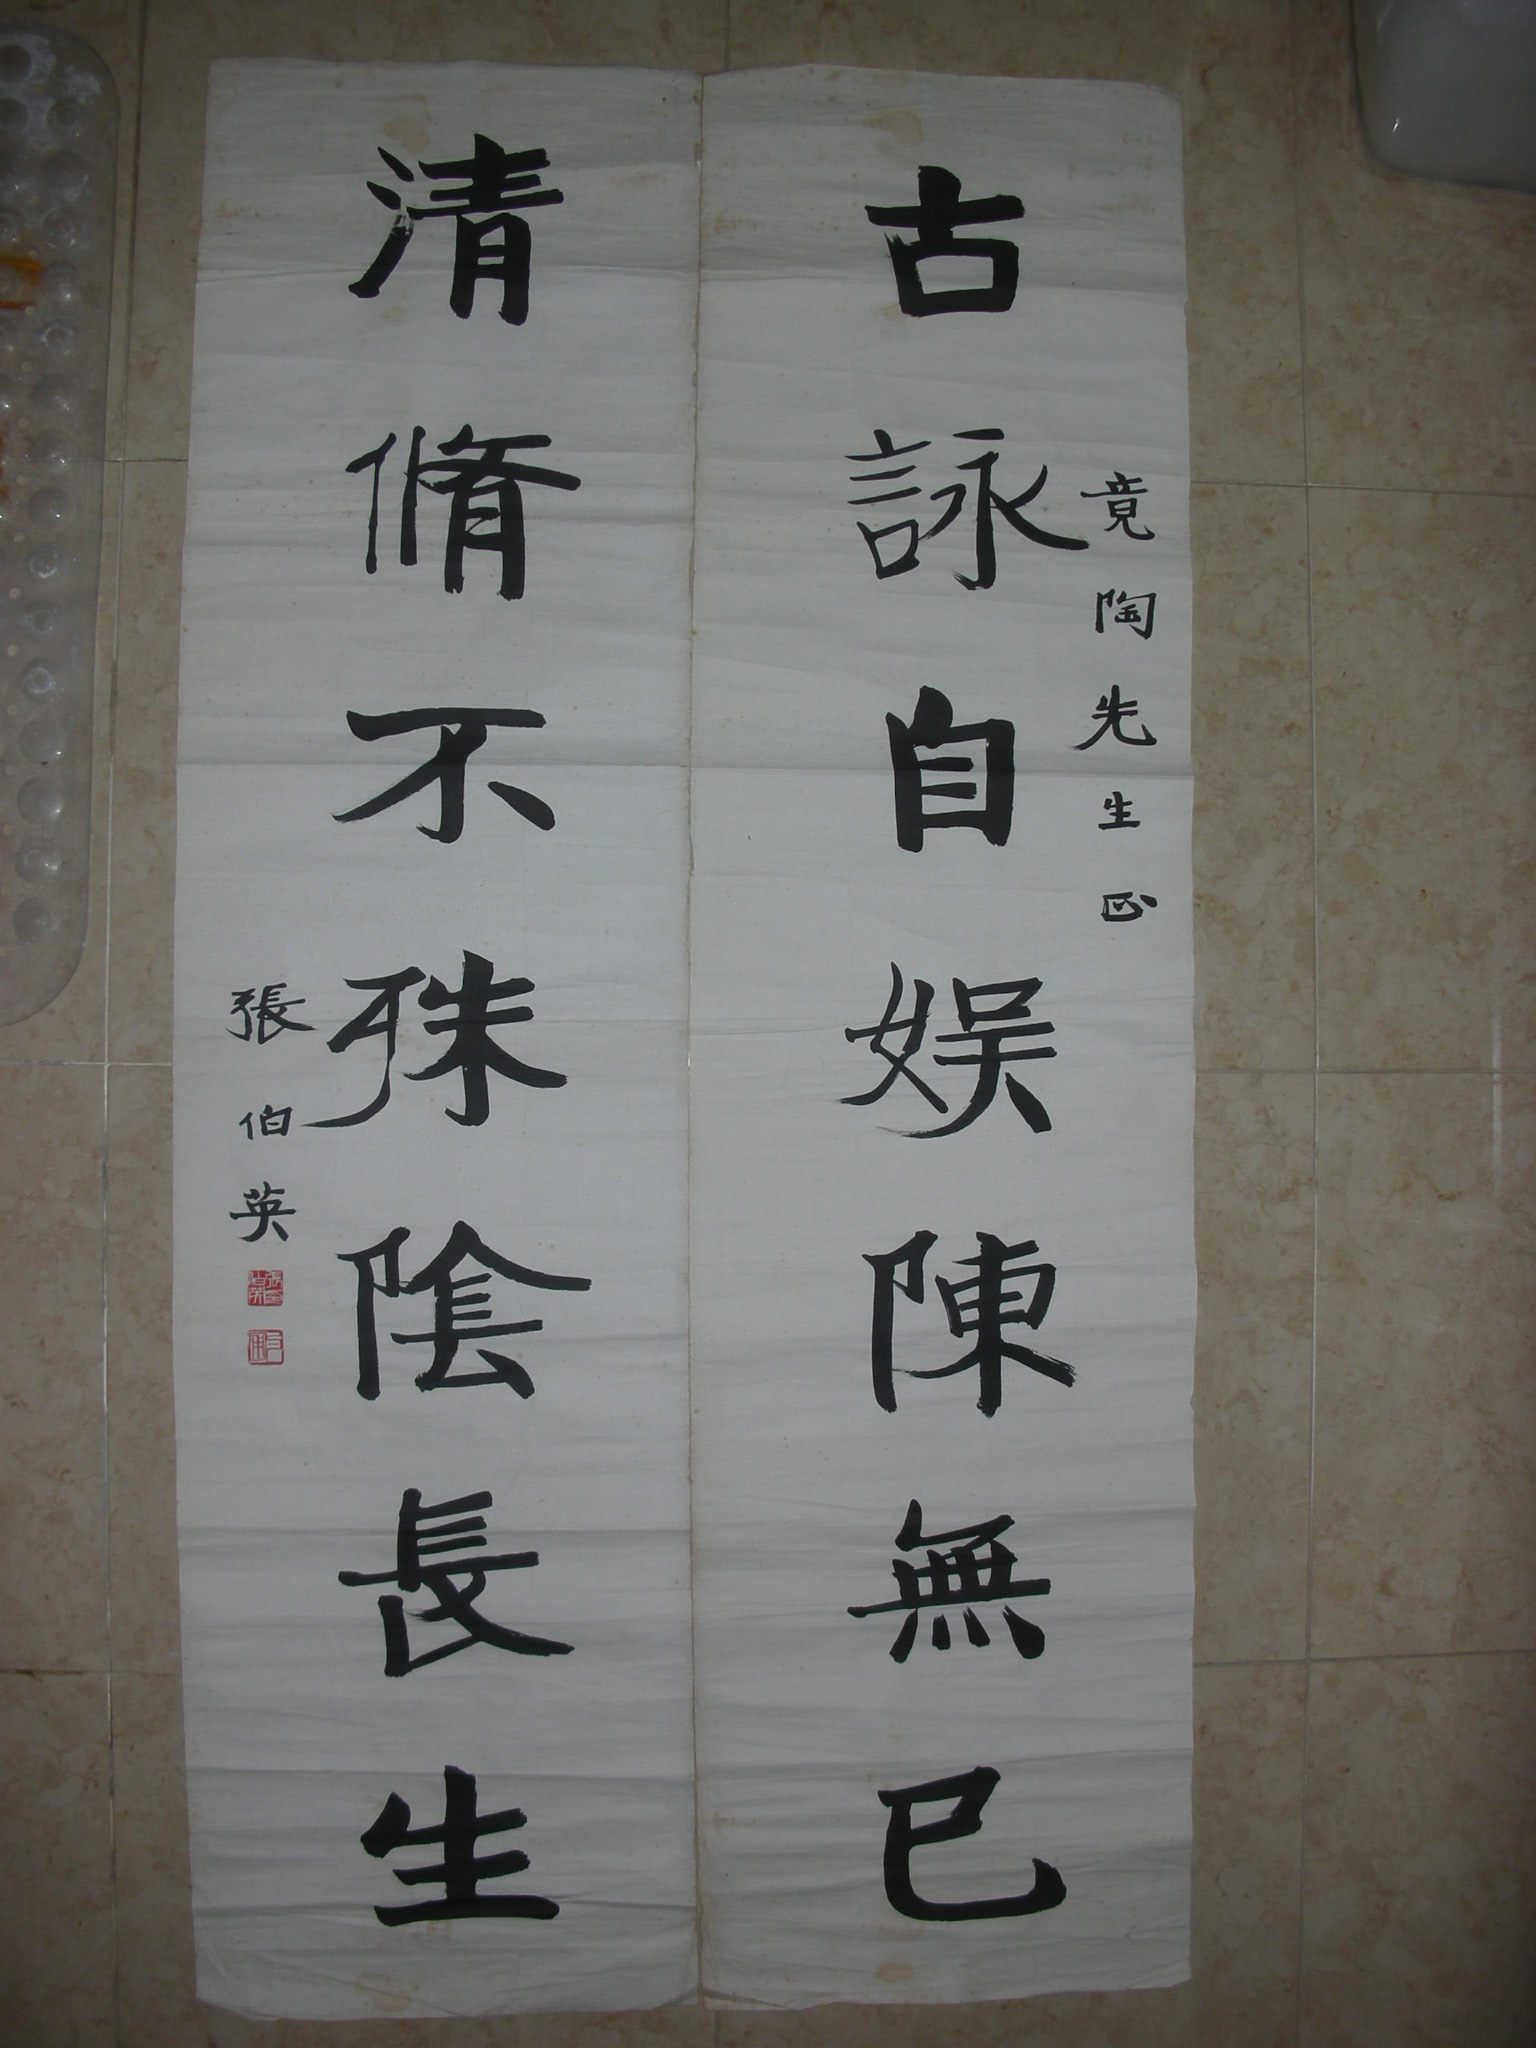 竟陶先生正
古詠自娛陳無已
清脩不殊陰長生
張伯英